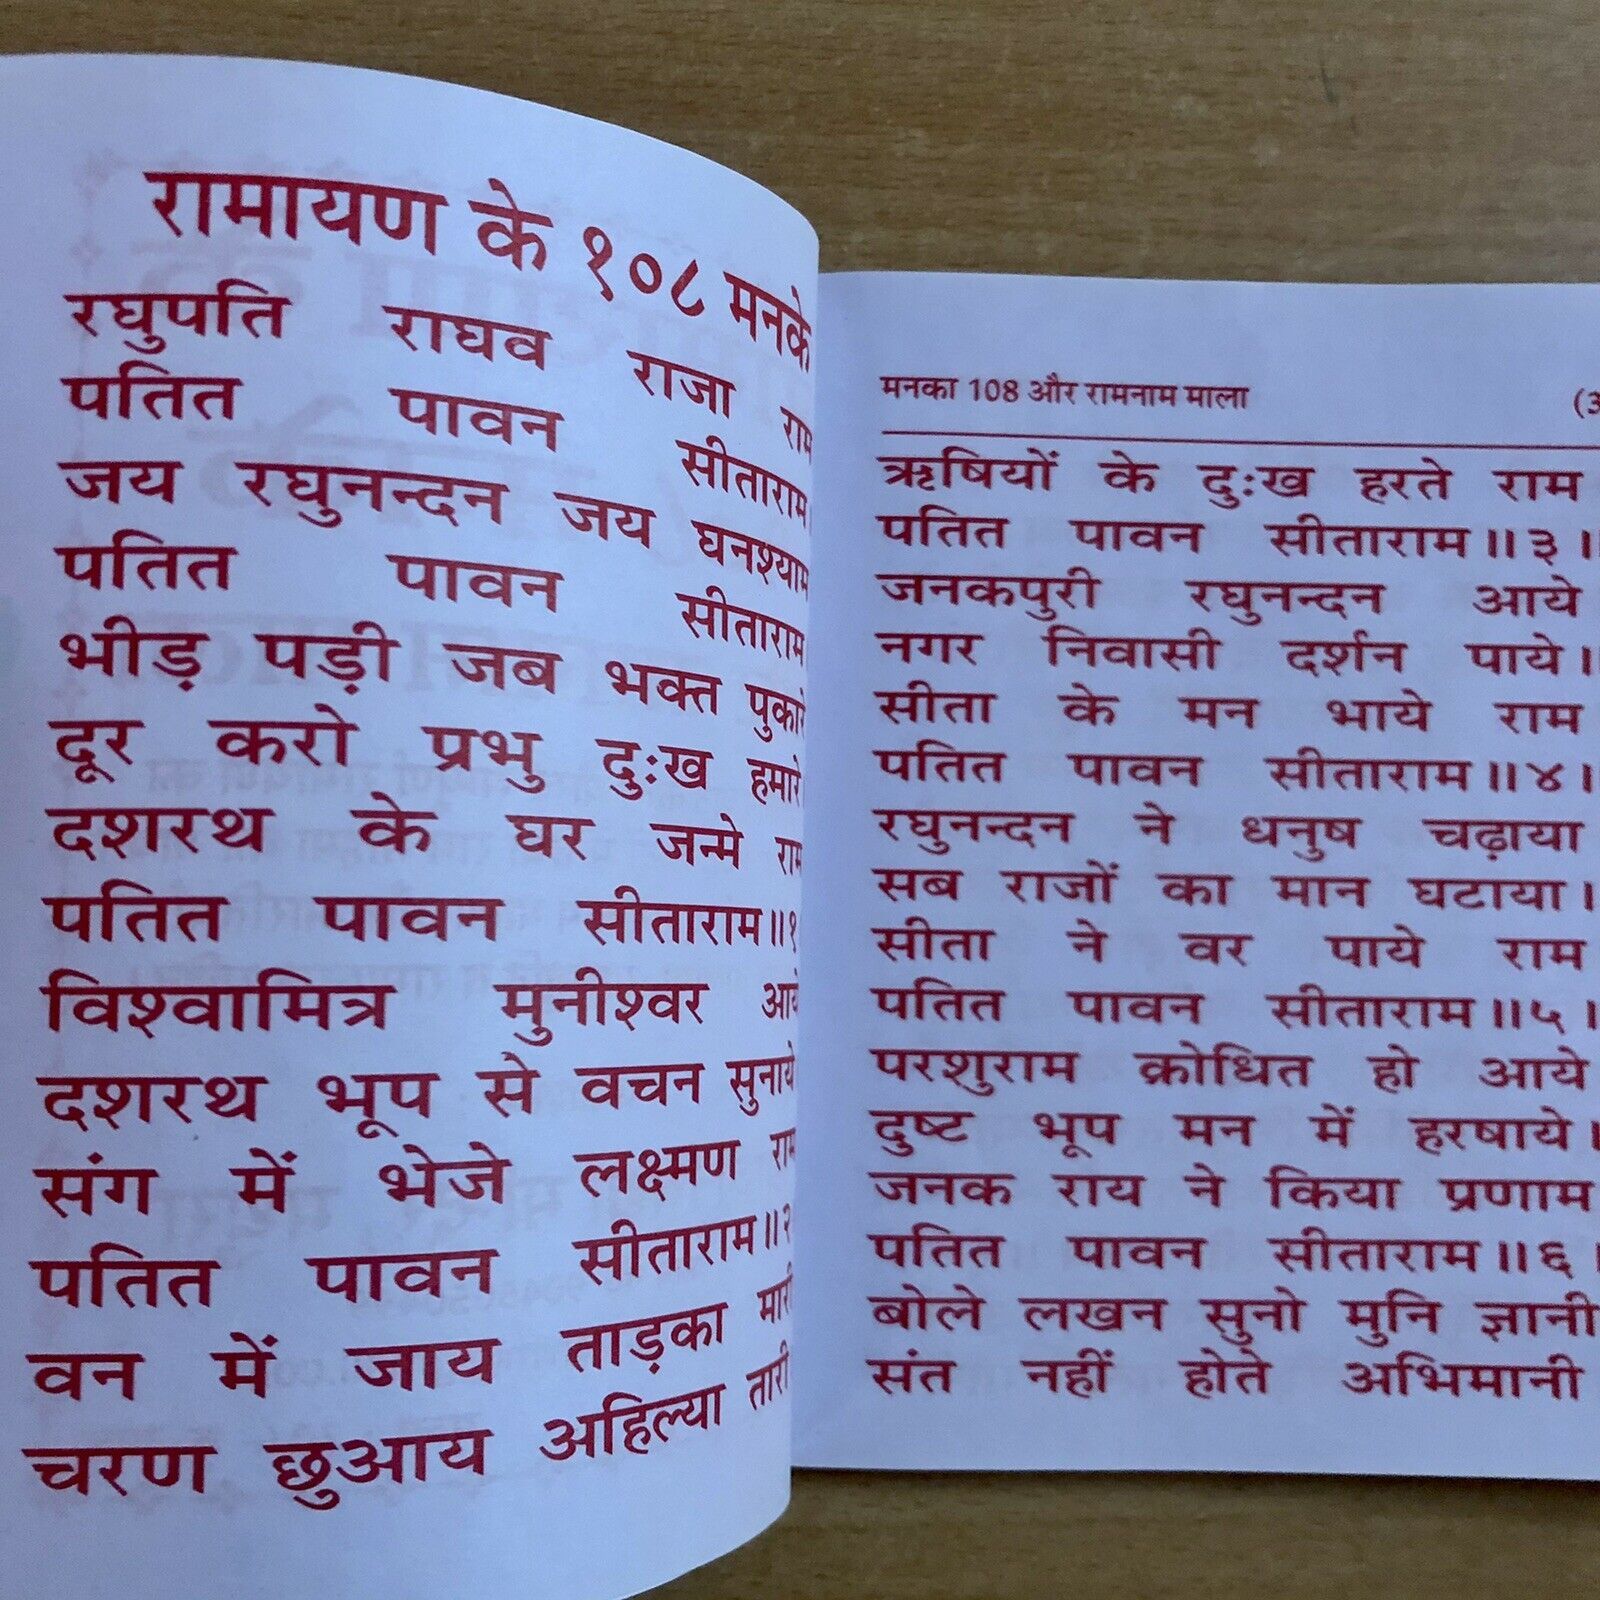 रामायण के १०८ मनके
रघुपति राघव राजा राम
पतित पावन सीताराम।
जय रघुनन्दन जय घनश्याम
पतित पावन सीताराम
भीड़ पड़ी जब भक्त पुकारे
दूर करो प्रभु दुःख हमारे
दशरथ के घर जन्मे राम
पतित पावन सीताराम॥१
विश्वामित्र मुनीश्वर आये
दशरथ भूप से वचन सुनाये
संग में भेजे लक्ष्मण राम
पतित पावन सीताराम॥२
वन में जाय ताड़का मारी
चरण छुआय अहिल्या तारी
मनका 108 और रामनाम माला (3
ऋषियों के दुःख हरते राम
पतित पावन सीताराम॥३।
जनकपुरी रघुनन्दन आये
नगर निवासी दर्शन पाये।
सीता के मन भाये राम
पतित पावन सीताराम॥४।
रघुनन्दन ने धनुष चढ़ाया
सब राजों का मान घटाया।
सीता ने वर पाये राम
पतित पावन सीताराम॥५।
परशुराम क्रोधित हो आये
दुष्ट भूप मन में हरषाये।
जनक राय ने किया प्रणाम
पतित पावन सीताराम॥६।
बोले लखन सुनो मुनि ज्ञानी
संत नहीं होते अभिमानी